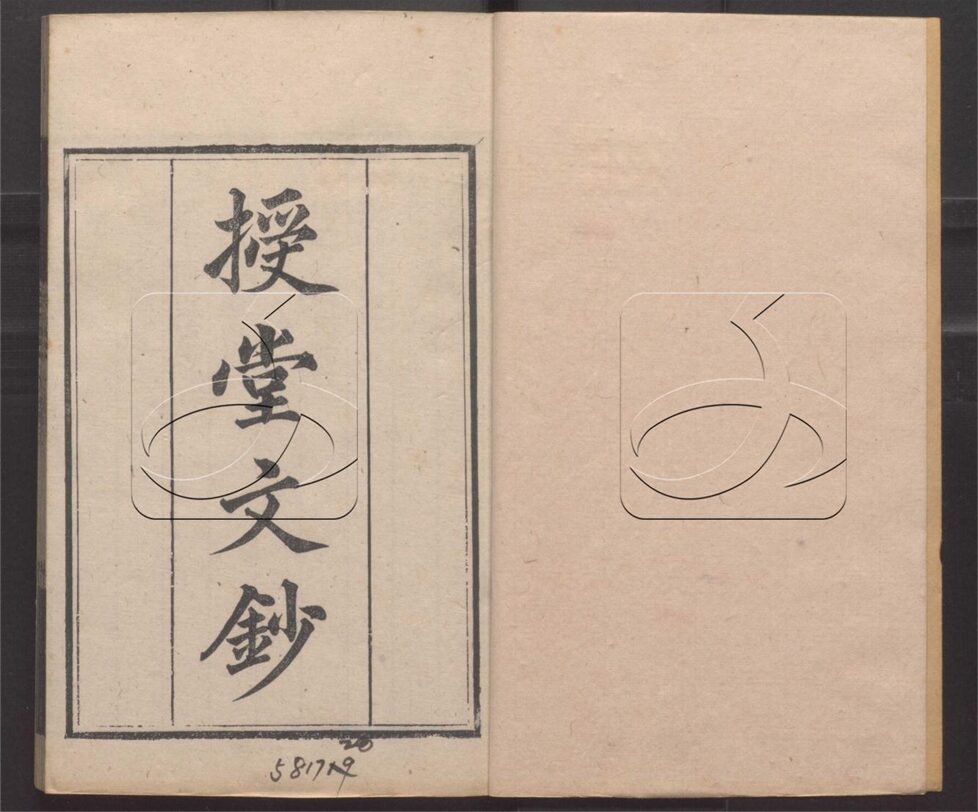 授堂文鈔
20
581719